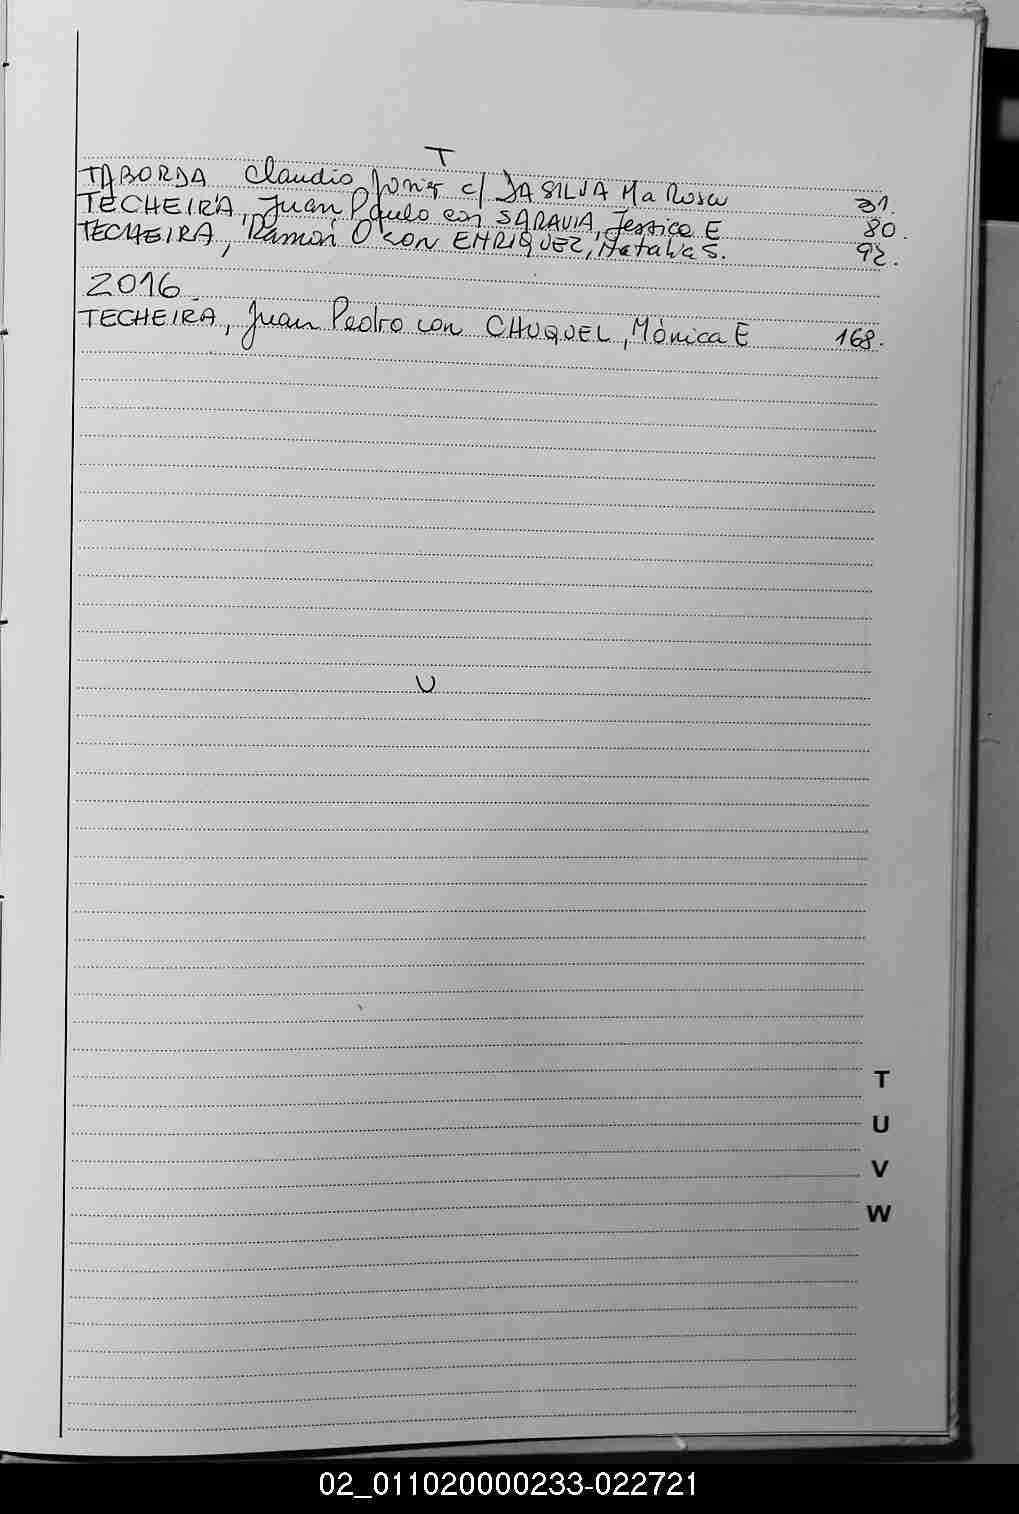 T
TABORDA Claudio Junior c/ DA SILVA Ma Rosa 31.
TECHEIRA, Juan Paulo con SARAVIA, Jessica E 80.
TECHEIRA, Ramon O con ENRIQUEZ, Natalia S. 92.
2016.
TECHEIRA, Juan Pedro con CHUQUEL, Mónica E 168.
U
T
U
V
W
02_011020000233-022721